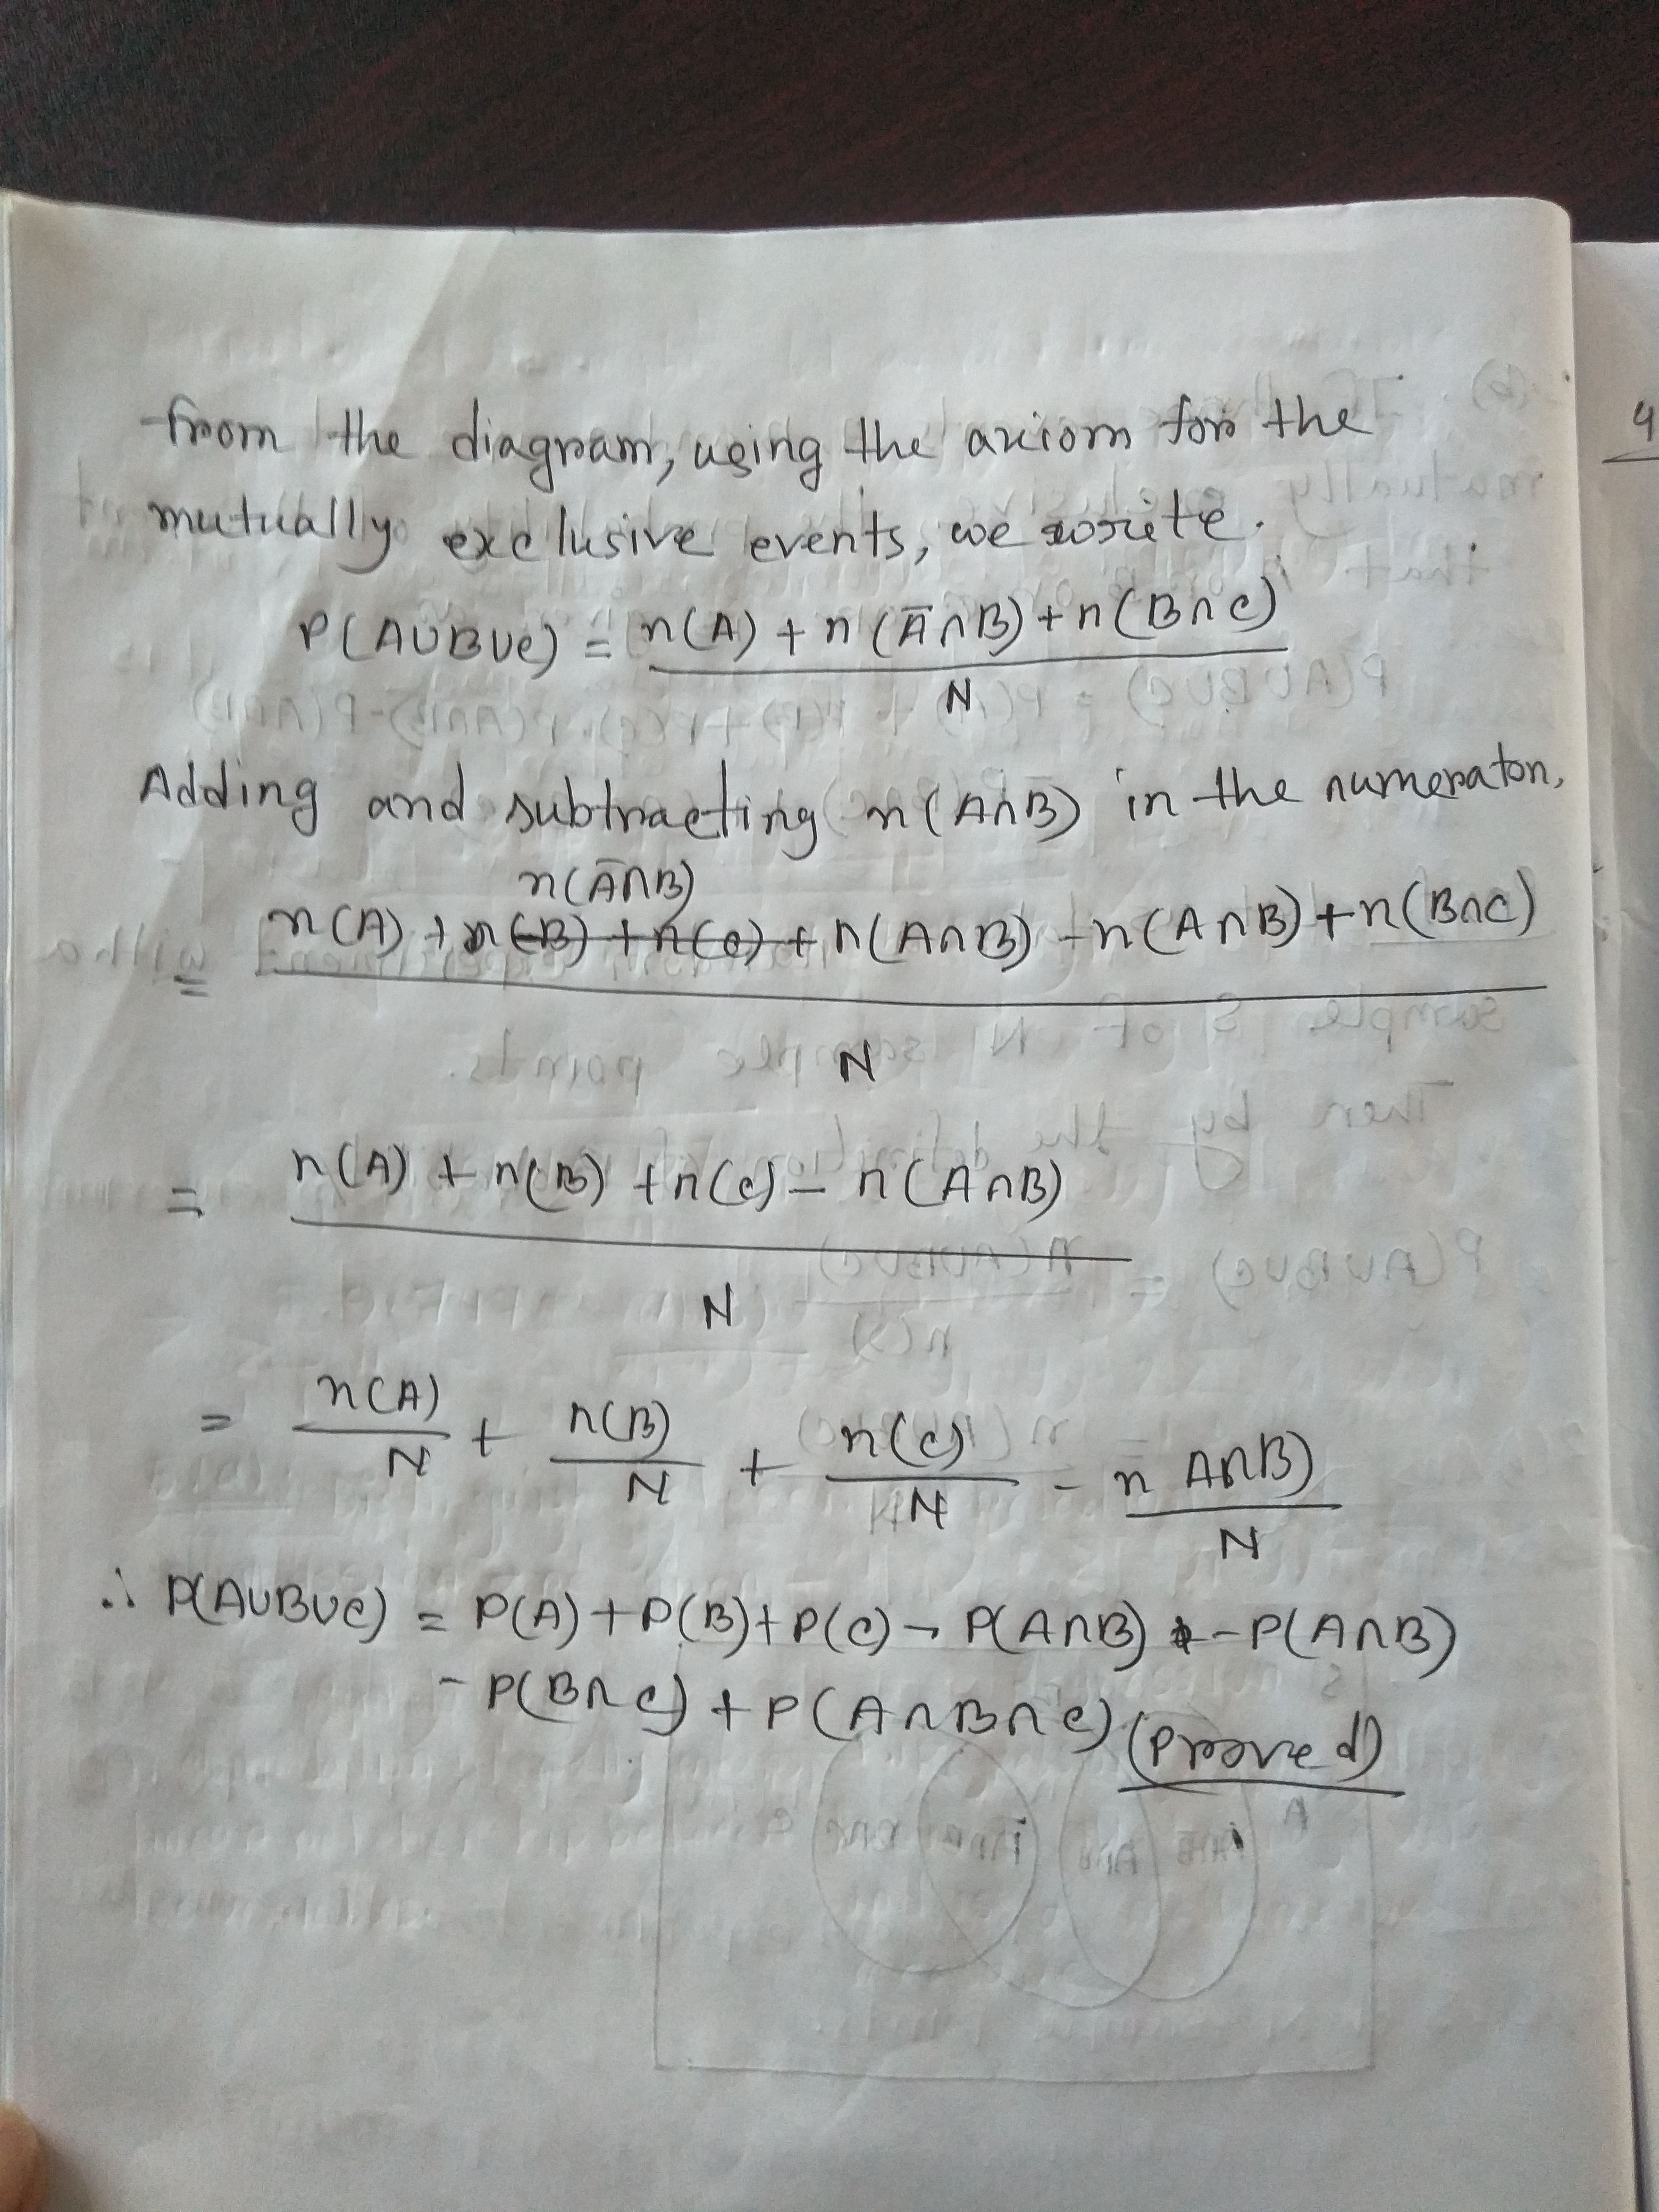 from the diagram, using the axiom for the
mutually exclusive events, we write.
P(A∪B∪C) = n(A) + n(Ā∩B) + n(B∩C)
N
Adding and subtracting n(A∩B) in the numerator,
n(Ā∩B)
= n(A) + n(B) + n(C) + n(A∩B) - n(A∩B) + n(B∩C)
N
= n(A) + n(B) + n(C) - n(A∩B)
N
= n(A)/N + n(B)/N + n(C)/N - n A∩B)/N
∴ P(A∪B∪C) = P(A) + P(B) + P(C) - P(A∩B) - P(A∩B)
- P(B∩C) + P(A∩B∩C) (Proved)
4